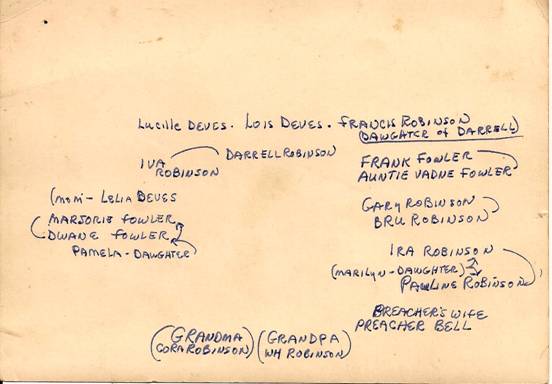 Lucille Deves. Lois Deves. Francis Robinson
(Daughter of Darrell)
Iva Robinson
Darrell Robinson
(mom - Lelia Deves
Marjorie Fowler
Dwane Fowler
Pamela - Daughter
Frank Fowler
Auntie Vadne Fowler
Gary Robinson
Bru Robinson
Ira Robinson
(Marilyn - Daughter)
Pauline Robinson
Preacher's Wife
Preacher Bell
(Grandma
Cora Robinson)
(Grandpa
WH Robinson)